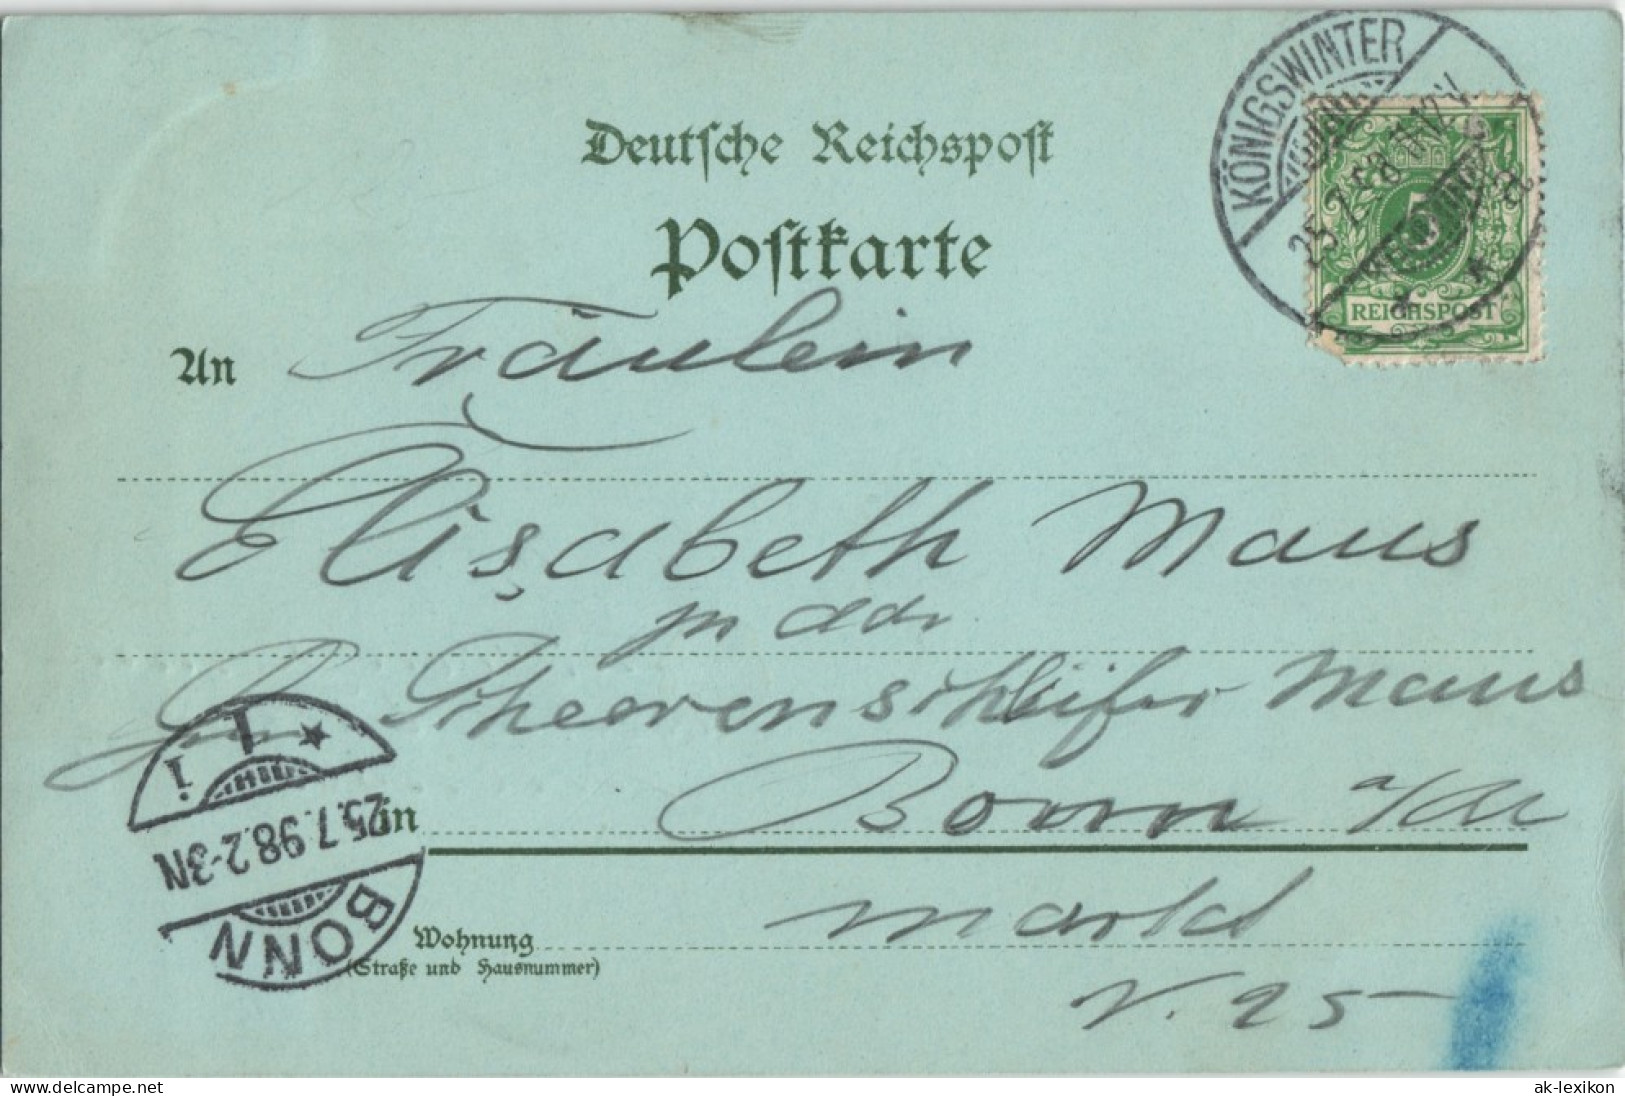 Deutsche Reichspost
Postkarte
KÖNIGSWINTER
25.7.98 11-12V.
* a *
5
REICHSPOST
An Fräulein
Elisabeth Maus
Scheerenschleifer Maus
in Bonn a/Rh
Markt
Wohnung
(Straße und Hausnummer)
N. 25
BONN
25.7.98.2-3N
* 1 i
www.delcampe.net
ak-lexikon